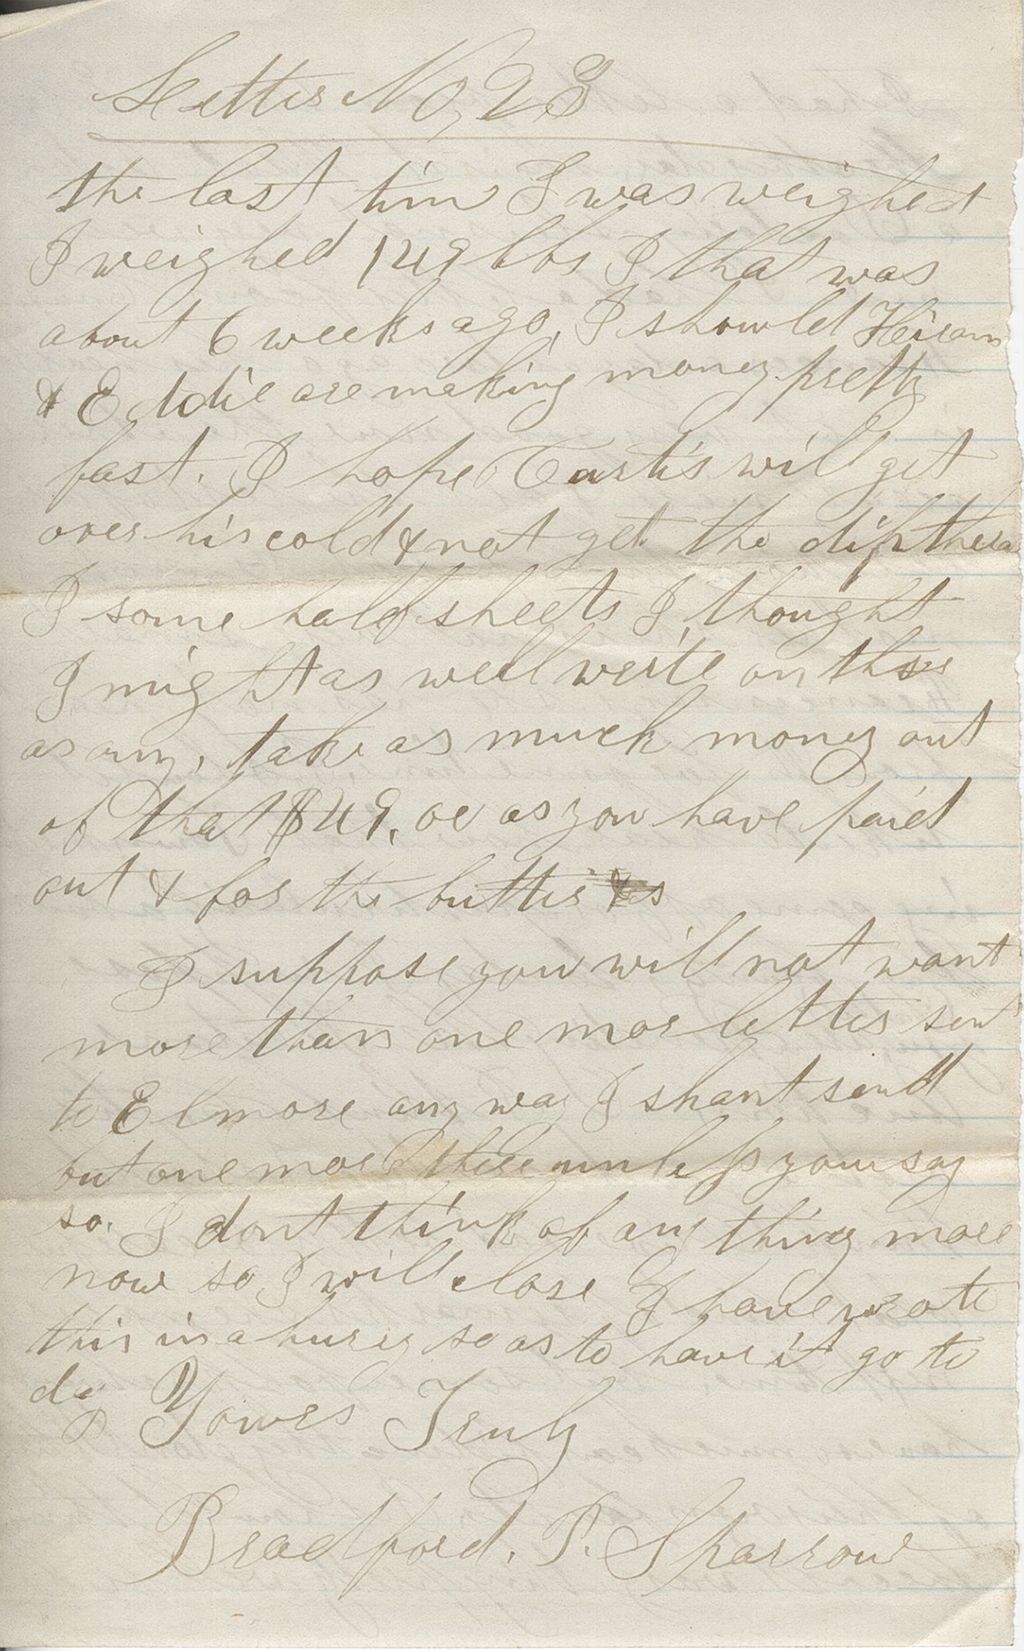 Letter No, 28
the last tim I was weighed
I weighed 149 lbs I that was
about 6 weeks ago, I showld Hiram
& Eddie are making money pretty
fast. I hope Curtis will get
over his cold & not get the dipthera
I some half sheets I thought
I might as well write on this
as any, take as much money out
of that $49. or as you have paid
out & for the butter &s
I suppose you will not want
more than one mor letter sent
to Elmore any way I shant send
but one mor there unless you say
so. I dont think of any thing more
now so I will close I have wrote
this in a hurry so as to have it go to
day
Yours Truly
Bradford. P. Sparrow